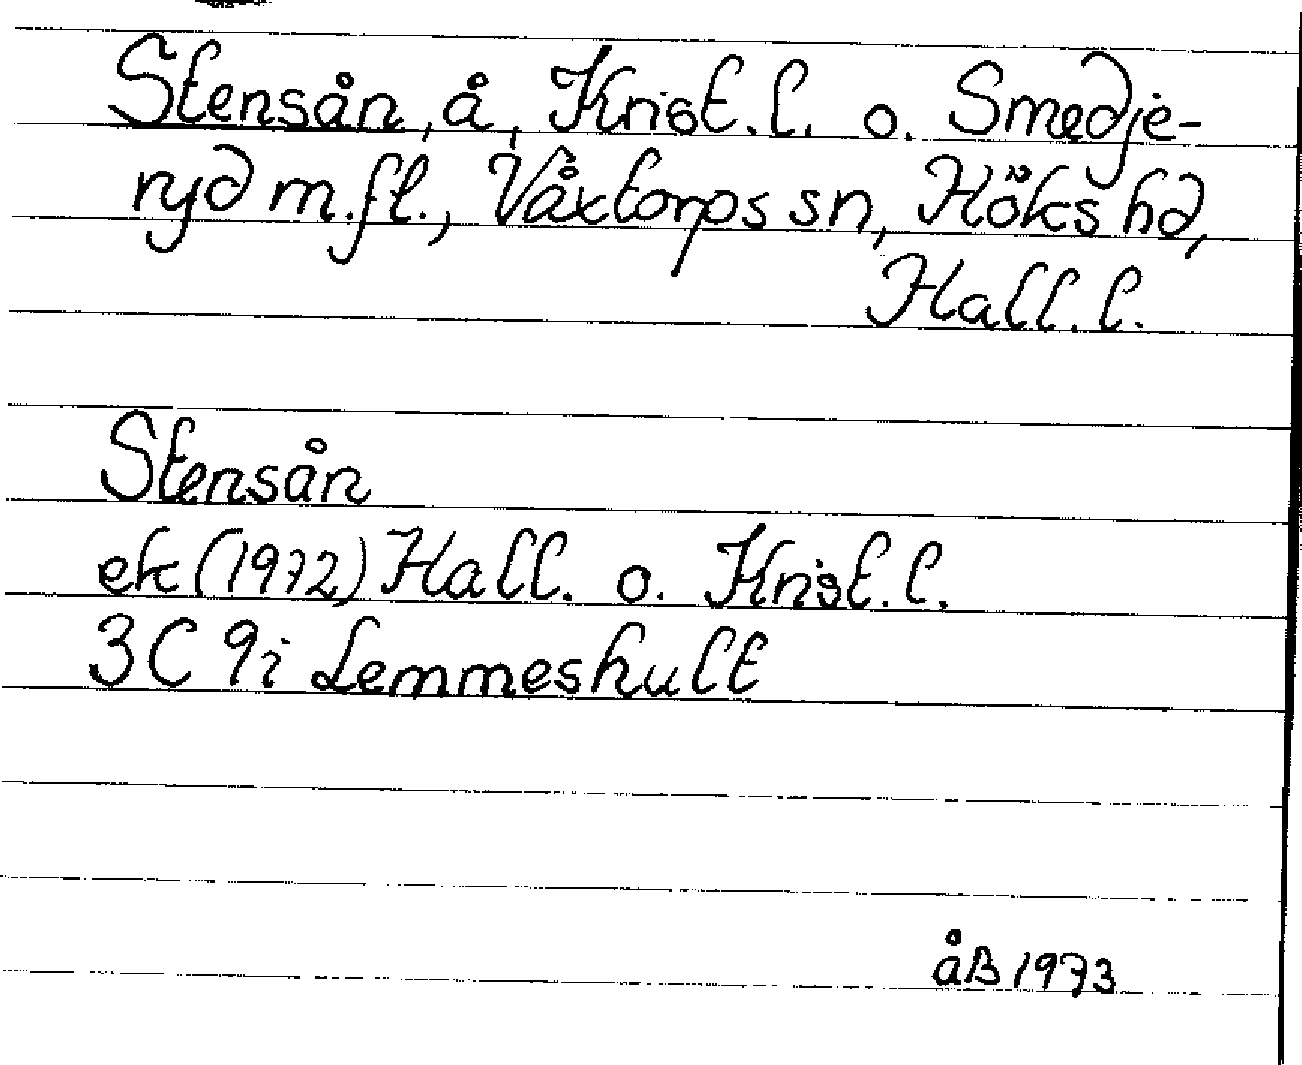 Stensån, å, Krist. l. o. Smedje-
ryd m.fl., Våxtorps sn, Höks hd,
Hall. l.
Stensån
ek (1972) Hall. o. Krist. l.
3C 9i Lemmeshult
åB 1973